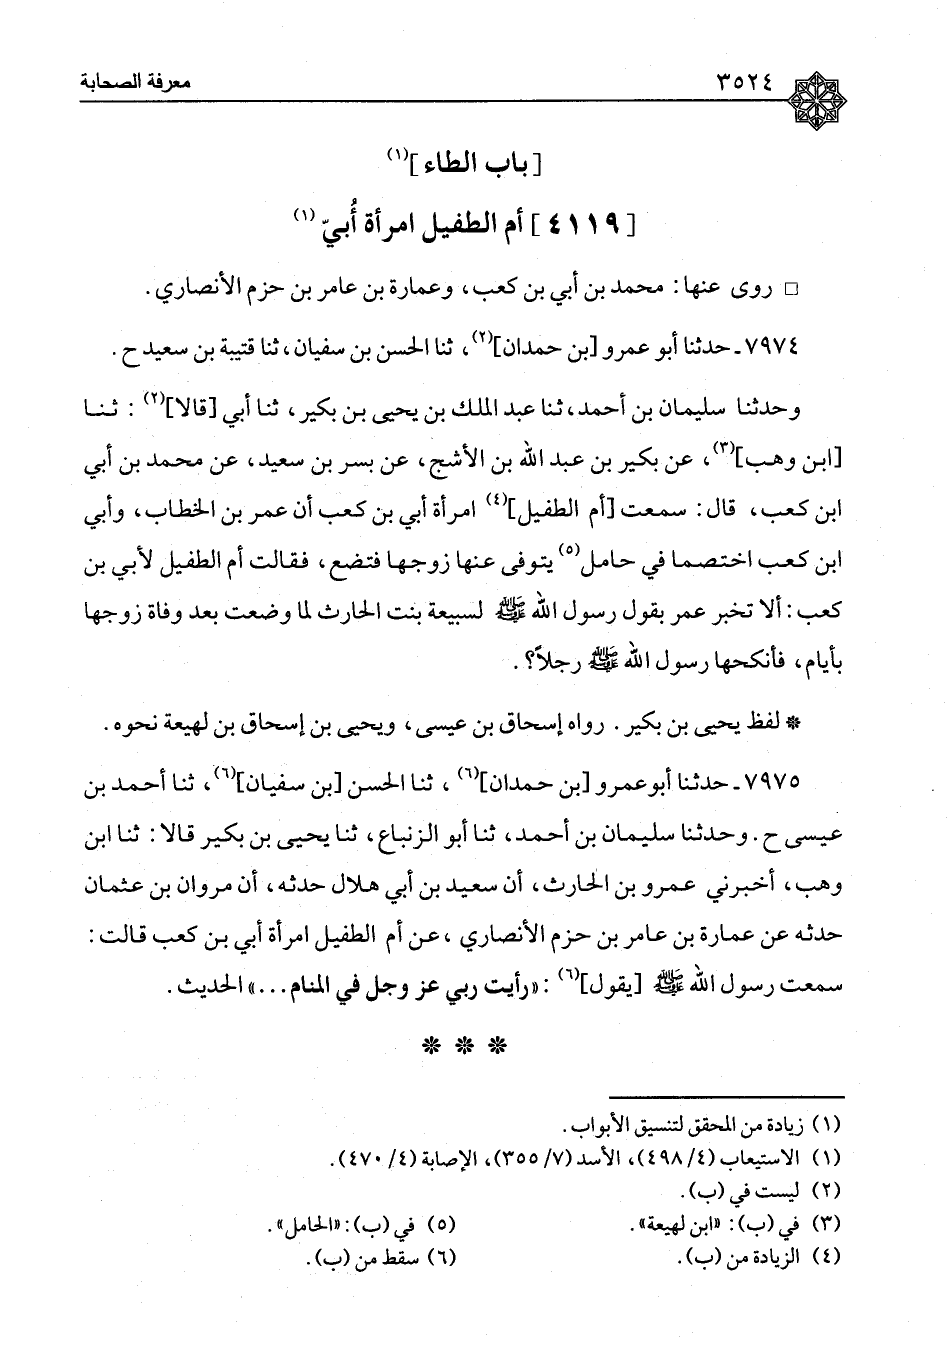 ٣٥٢٤ معرفة الصحابة
[باب الطاء](١)
[٤١١٩] أم الطفيل امرأة أُبيّ (١)
□ روى عنها: محمد بن أبي بن كعب، وعمارة بن عامر بن حزم الأنصاري.
٧٩٧٤ـ حدثنا أبو عمرو [بن حمدان](٢)، ثنا الحسن بن سفيان، ثنا قتيبة بن سعيد ح.
وحدثنا سليمان بن أحمد، ثنا عبد الملك بن يحيى بن بكير، ثنا أبي [قالا](٢): ثنا
[ابن وهب](٣)، عن بكير بن عبد الله بن الأشج، عن بسر بن سعيد، عن محمد بن أبي
ابن كعب، قال: سمعت [أم الطفيل](٤) امرأة أبي بن كعب أن عمر بن الخطاب، وأبي
ابن كعب اختصما في حامل(٥) يتوفى عنها زوجها فتضع، فقالت أم الطفيل لأبي بن
كعب: ألا تخبر عمر بقول رسول الله ﷺ لسبيعة بنت الحارث لما وضعت بعد وفاة زوجها
بأيام، فأنكحها رسول الله ﷺ رجلاً؟.
* لفظ يحيى بن بكير. رواه إسحاق بن عيسى، ويحيى بن إسحاق بن لهيعة نحوه.
٧٩٧٥ـ حدثنا أبو عمرو [بن حمدان](٦)، ثنا الحسن [بن سفيان](٦)، ثنا أحمد بن
عيسى ح. وحدثنا سليمان بن أحمد، ثنا أبو الزنباع، ثنا يحيى بن بكير قالا: ثنا ابن
وهب، أخبرني عمرو بن الحارث، أن سعيد بن أبي هلال حدثه، أن مروان بن عثمان
حدثه عن عمارة بن عامر بن حزم الأنصاري، عن أم الطفيل امرأة أبي بن كعب قالت:
سمعت رسول الله ﷺ [يقول](٦): «رأيت ربي عز وجل في المنام...» الحديث.
* * *
(١) زيادة من المحقق لتنسيق الأبواب.
(١) الاستيعاب (٤/ ٤٩٨)، الأسد (٧/ ٣٥٥)، الإصابة (٤/ ٤٧٠).
(٢) ليست في (ب).
(٣) في (ب): «ابن لهيعة». (٥) في (ب): «الحامل».
(٤) الزيادة من (ب). (٦) سقط من (ب).